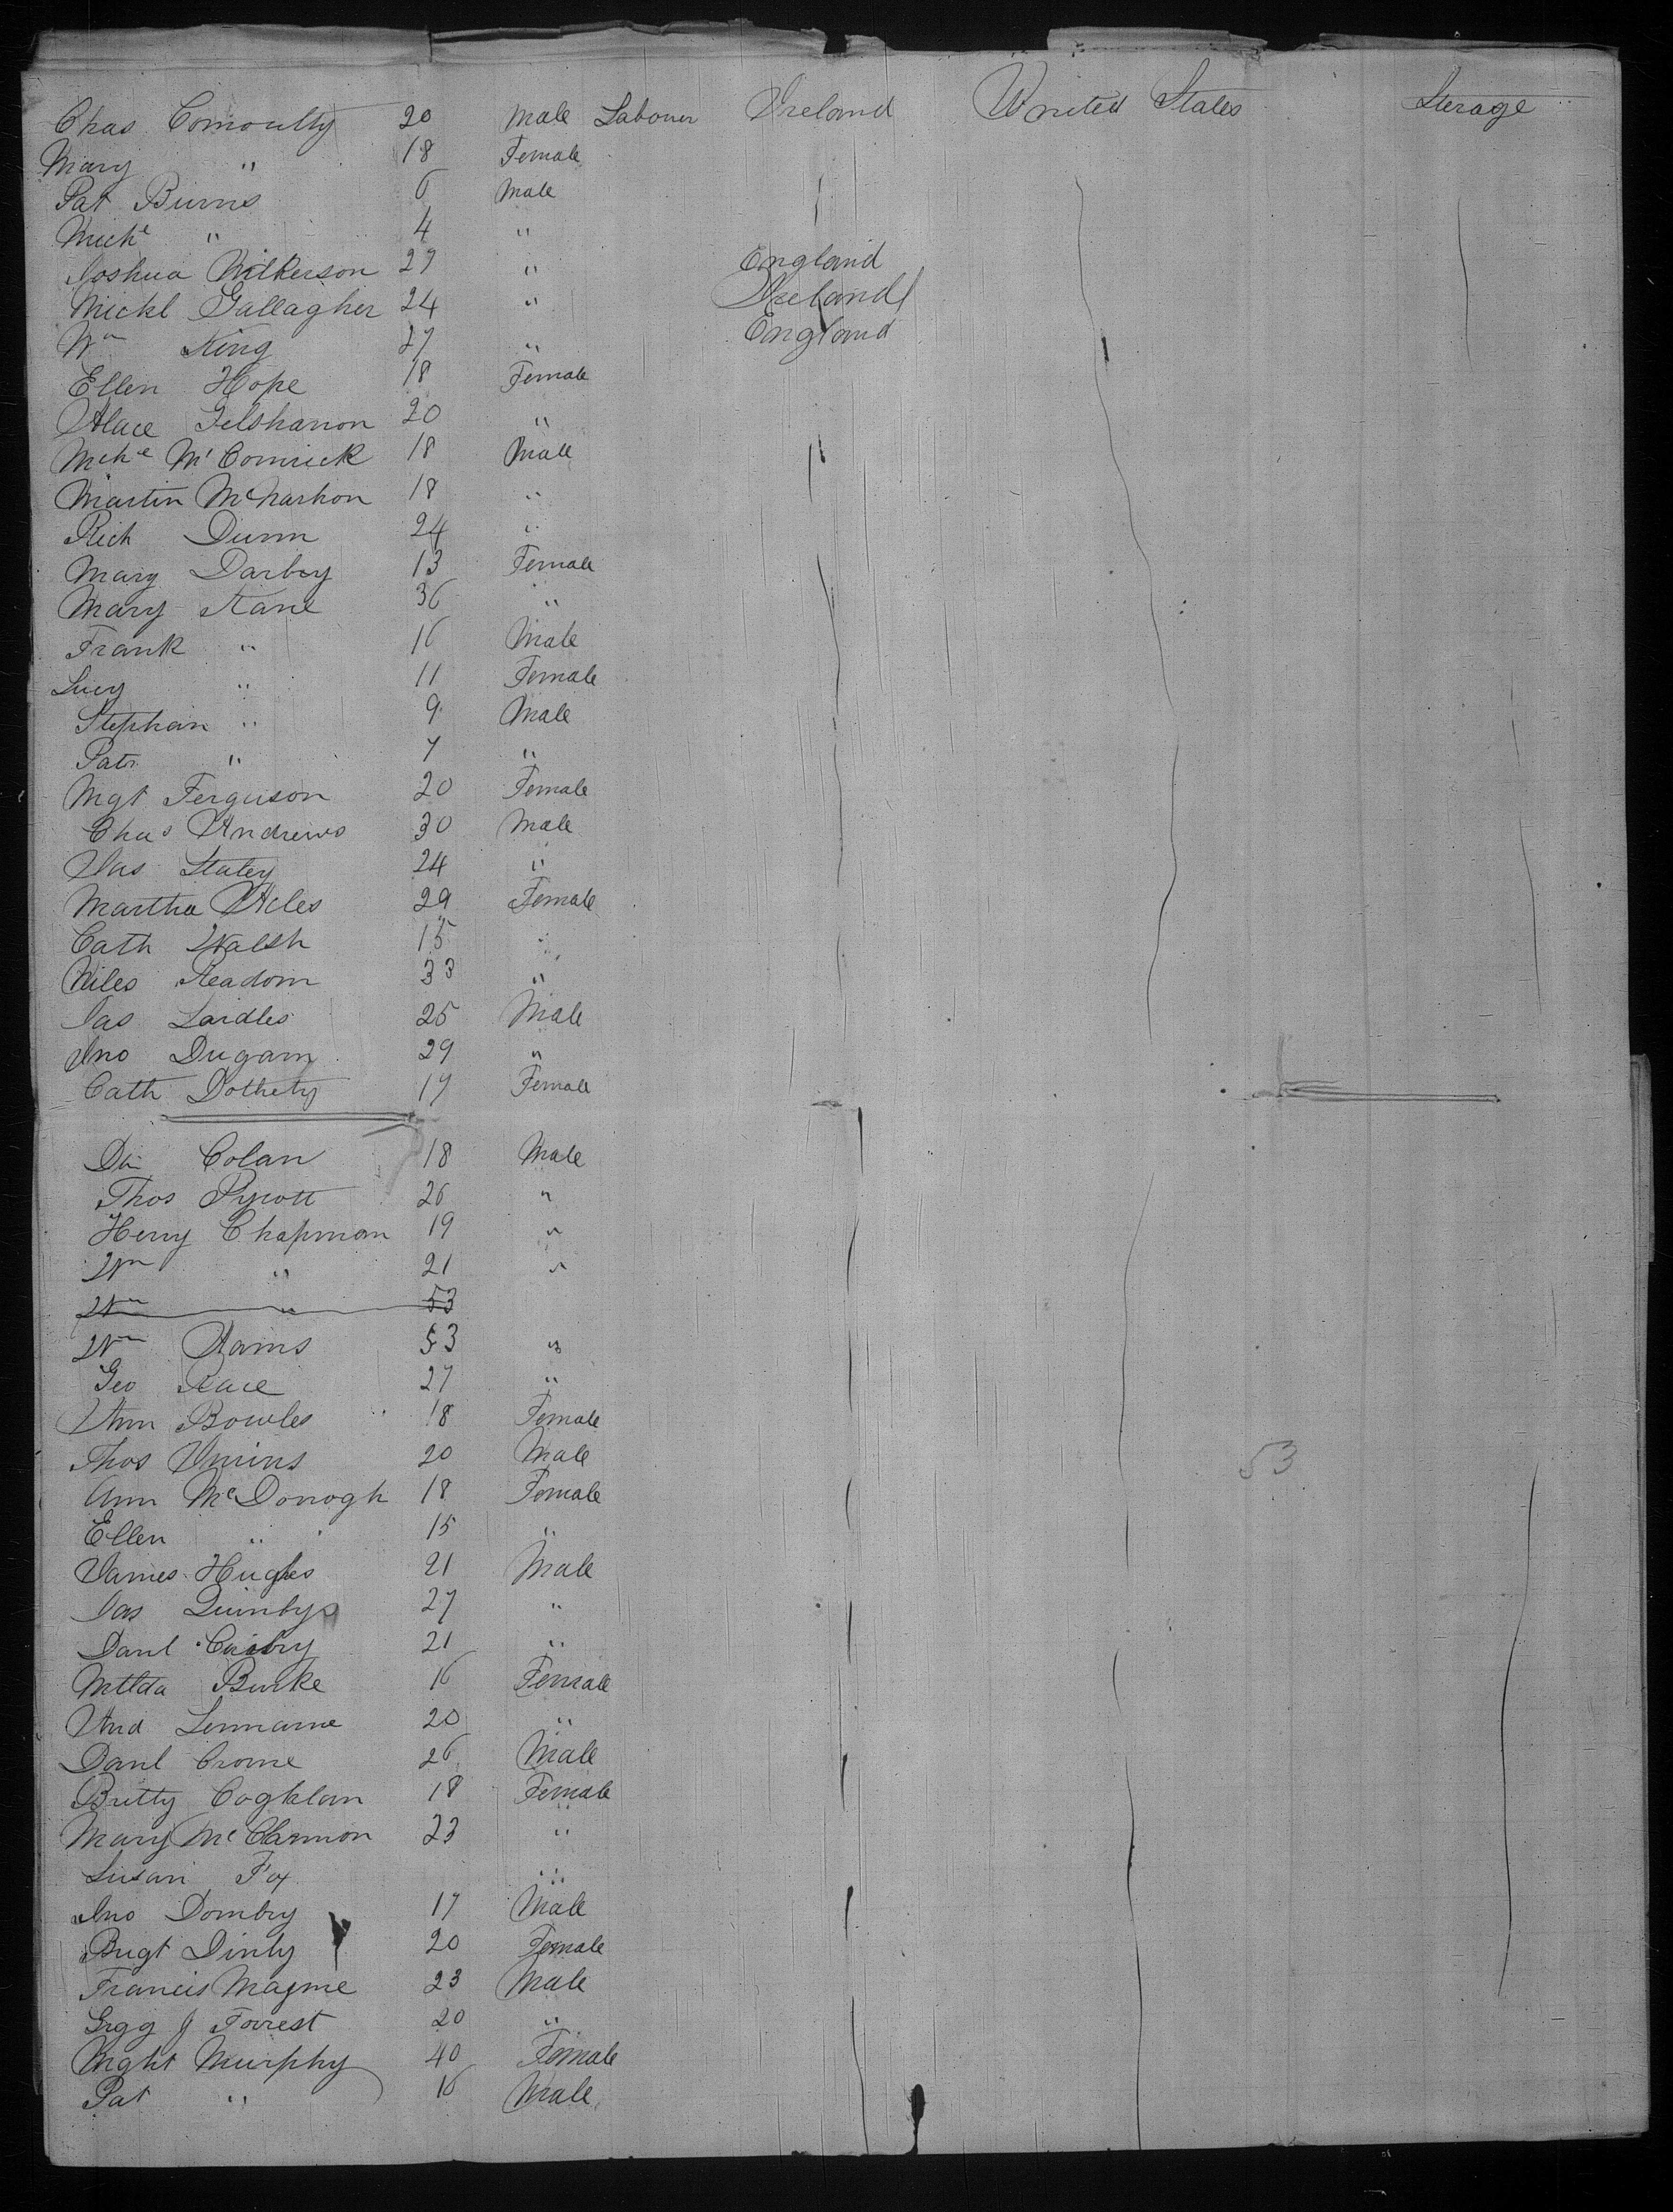 Chas Comoulty 20 Male Labourer Ireland United States Sterage
Mary " 18 Female
Pat Burns 6 Male
Miche " 4 "
Joshua Wilkerson 27 " England
Mickl Gallagher 24 " Ireland
Wm King 27 " England
Ellen Hope 18 Female
Alace Gelshanon 20 "
Miche McComick 18 Male
Martin McMarhon 18 "
Rich Dunn 24 "
Mary Darby 13 Female
Mary Kane 36 "
Frank " 16 Male
Lucy " 11 Female
Stephan " 9 Male
Patr " 7 "
Mgt Ferguson 20 Female
Chas Andrews 30 Male
Jas Staley 24 "
Martha Acles 29 Female
Cath Walsh 15 "
Niles Readom 33 "
Jas Laidles 25 Male
Jno Dugam 29 "
Cath Dothety 17 Female
Colan 18 Male
Thos Pycott 26 "
Heny Chapman 19 "
Wm " 21 "
Wm " 53
Wm Rams 53 "
Geo Race 27 "
Ann Bowles 18 Female
Thos 20 Male 53
Ann McDonogh 18 Female
Ellen " 15 "
James Hughes 21 Male
Jas Quinby 27 "
Danl 21 "
Mtlda Burke 16 Female
And Lenname 20 "
Danl Crome 26 Male
Britty Coghlan 18 Female
Mary McClarmon 23 "
Susan Fox "
Jno Domby 17 Male
Brigt Dinly 20 Female
Francis Magme 23 Male
Grgg J Forrest 20 "
Mght Murphy 40 Female
Pat " 16 Male